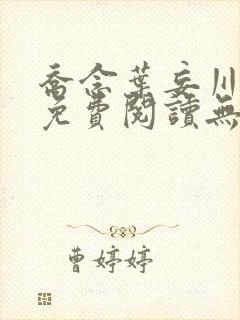 喬念葉妄川
免費閱讀無
曹婷婷